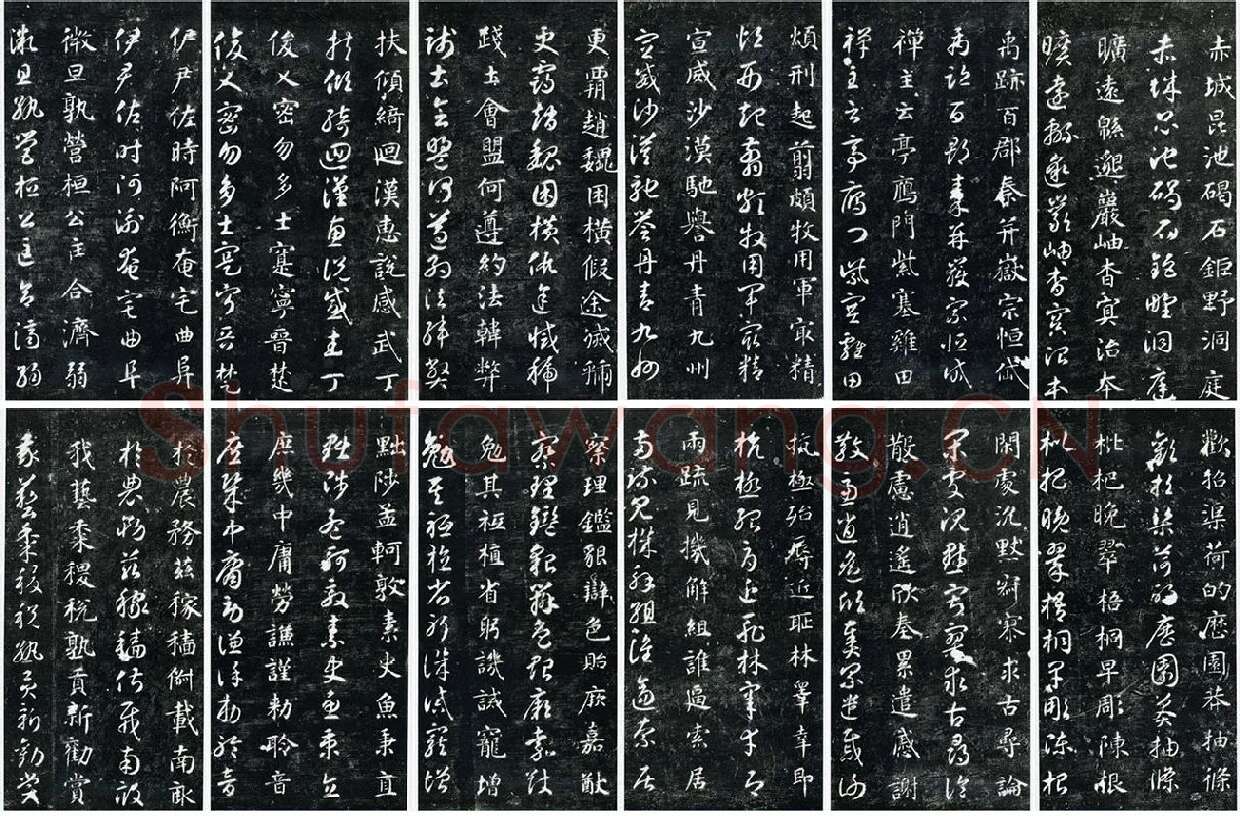 伊尹佐時阿衡奄宅曲阜
伊尹佐時阿衡奄宅曲阜
微旦孰營桓公匡合濟弱
微旦孰營桓公匡合濟弱
扶傾綺迴漢惠說感武丁
扶傾綺迴漢惠說感武丁
俊乂密勿多士寔寧晉楚
俊乂密勿多士寔寧晉楚
更霸趙魏困橫假途滅虢
更霸趙魏困橫假途滅虢
踐土會盟何遵約法韓弊
踐土會盟何遵約法韓弊
煩刑起翦頗牧用軍最精
煩刑起翦頗牧用軍最精
宣威沙漠馳譽丹青九州
宣威沙漠馳譽丹青九州
禹跡百郡秦并嶽宗恒岱
禹跡百郡秦并嶽宗恒岱
禪主云亭鴈門紫塞雞田
禪主云亭鴈門紫塞雞田
赤城昆池碣石鉅野洞庭
赤城昆池碣石鉅野洞庭
曠遠緜邈巖岫杳冥治本
曠遠緜邈巖岫杳冥治本
於農務茲稼穡俶載南畝
於農務茲稼穡俶載南畝
我藝黍稷稅熟貢新勸賞
我藝黍稷稅熟貢新勸賞
黜陟孟軻敦素史魚秉直
黜陟孟軻敦素史魚秉直
庶幾中庸勞謙謹勑聆音
庶幾中庸勞謙謹勑聆音
察理鑑貌辯色貽厥嘉猷
察理鑑貌辯色貽厥嘉猷
勉其祗植省躬譏誡寵增
勉其祗植省躬譏誡寵增
抗極殆辱近恥林睪幸即
抗極殆辱近恥林睪幸即
兩疏見機解組誰逼索居
兩疏見機解組誰逼索居
閑處沉默寂寥求古尋論
閑處沉默寂寥求古尋論
散慮逍遙欣奏累遣慼謝
散慮逍遙欣奏累遣慼謝
歡招渠荷的歷園莽抽條
歡招渠荷的歷園莽抽條
枇杷晚翠梧桐早彫陳根
枇杷晚翠梧桐早彫陳根
Shufawang.CN